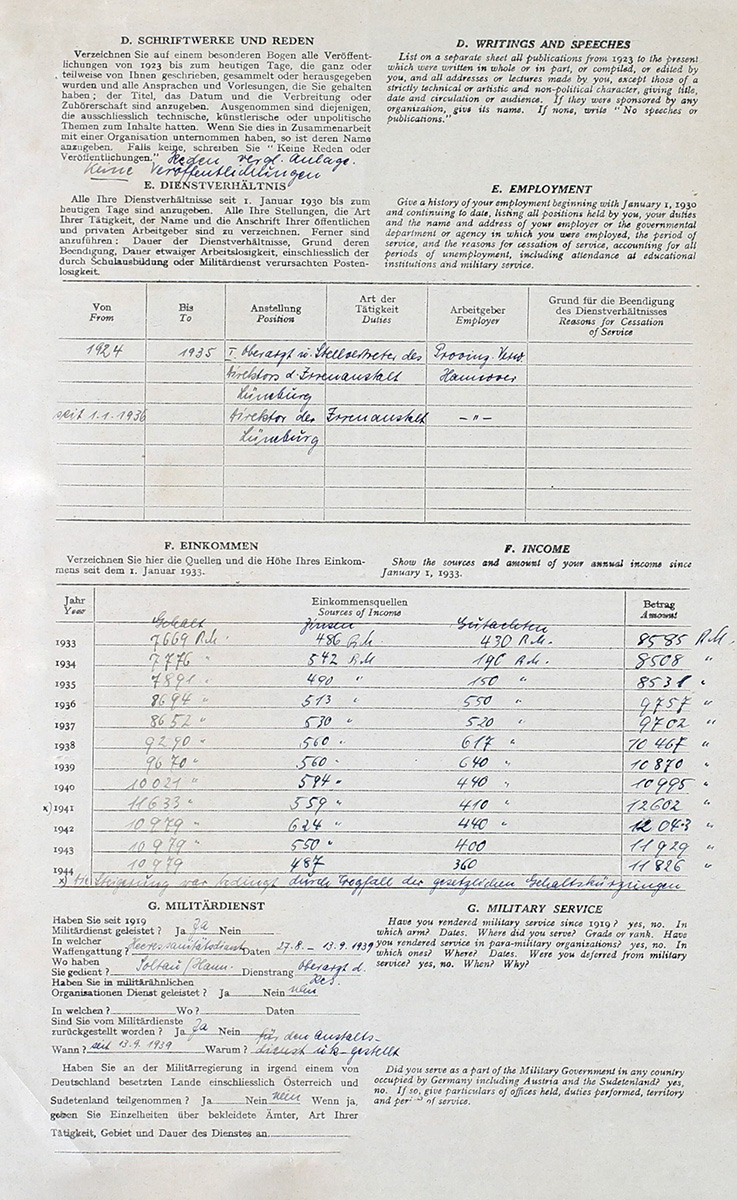 D. SCHRIFTWERKE UND REDEN
Verzeichnen Sie auf einem besonderen Bogen alle Veröffent-
lichungen von 1923 bis zum heutigen Tage, die ganz oder
teilweise von Ihnen geschrieben, gesammelt oder herausgegeben
wurden und alle Ansprachen und Vorlesungen, die Sie gehalten
haben; der Titel, das Datum und die Verbreitung oder
Zuhörerschaft sind anzugeben. Ausgenommen sind diejenigen,
die ausschliesslich technische, künstlerische oder unpolitische
Themen zum Inhalte hatten. Wenn Sie dies in Zusammenarbeit
mit einer Organisation unternommen haben, so ist deren Name
anzugeben. Falls keine, schreiben Sie " Keine Reden oder
Veröffentlichungen." Reden vergl. Anlage.
Keine Veröffentlichungen
D. WRITINGS AND SPEECHES
List on a separate sheet all publications from 1923 to the present
which were written in whole or in part, or compiled, or edited by
you, and all addresses or lectures made by you, except those of a
strictly technical or artistic and non-political character, giving title,
date and circulation or audience. If they were sponsored by any
organization, give its name. If none, write " No speeches or
publications."
E. DIENSTVERHÄLTNIS
Alle Ihre Dienstverhältnisse seit 1. Januar 1930 bis zum
heutigen Tage sind anzugeben. Alle Ihre Stellungen, die Art
Ihrer Tätigkeit, der Name und die Anschrift Ihrer öffentlichen
und privaten Arbeitgeber sind zu verzeichnen. Ferner sind
anzuführen: Dauer der Dienstverhältnisse, Grund deren
Beendigung, Dauer etwaiger Arbeitslosigkeit, einschliesslich der
durch Schulausbildung oder Militärdienst verursachten Posten-
losigkeit.
E. EMPLOYMENT
Give a history of your employment beginning with January 1, 1930
and continuing to date, listing all positions held by you, your duties
and the name and address of your employer or the governmental
department or agency in which you were employed, the period of
service, and the reasons for cessation of service, accounting for all
periods of unemployment, including attendance at educational
institutions and military service.
Von From
Bis To
Anstellung Position
Art der Tätigkeit Duties
Arbeitgeber Employer
Grund für die Beendigung des Dienstverhältnisses Reasons for Cessation of Service
1924 1935 I. Oberarzt u. Stellvertreter des Provinz. Verw.
Direktors d. Irrenanstalt Hannover
Lüneburg
seit 1.1.1936 Direktor der Irrenanstalt -"-
Lüneburg
F. EINKOMMEN
Verzeichnen Sie hier die Quellen und die Höhe Ihres Einkom-
mens seit dem 1. Januar 1933.
F. INCOME
Show the sources and amount of your annual income since
January 1, 1933.
Jahr Year
Einkommensquellen Sources of Income
Betrag Amount
Gehalt Zinsen Gutachten
1933 7669 R.M. 486 R.M. 430 R.M. 8585 R.M.
1934 7776 " 542 R.M. 190 R.M. 8508 "
1935 7891 " 490 " 150 " 8531 "
1936 8694 " 513 " 550 " 9757 "
1937 8652 " 530 " 520 " 9702 "
1938 9290 " 560 " 617 " 10467 "
1939 9670 " 560 " 640 " 10870 "
1940 10021 " 594 " 440 " 10995 "
x) 1941 11633 " 559 " 410 " 12602 "
1942 10979 " 624 " 440 " 12043 "
1943 10979 " 550 " 400 11929 "
1944 10979 487 360 11826 "
x) Steigerung war bedingt durch Wegfall der gesetzlichen Gehaltskürzungen
G. MILITÄRDIENST
Haben Sie seit 1919
Militärdienst geleistet? Ja Ja Nein
In welcher
Waffengattung? Heeressanitätsdienst Daten 27.8. - 13.9.1939
Wo haben
Sie gedient? Soltau/Hann. Dienstrang Oberarzt d. Res.
Haben Sie in militärähnlichen
Organisationen Dienst geleistet? Ja Nein nein
In welchen? Wo? Daten
Sind Sie vom Militärdienste
zurückgestellt worden? Ja Ja Nein für den Anstalts-
Wann? seit 13.9.1939 Warum? dienst uk-gestellt
G. MILITARY SERVICE
Have you rendered military service since 1919? yes, no. In
which arm? Dates. Where did you serve? Grade or rank. Have
you rendered service in para-military organizations? yes, no. In
which ones? Where? Dates. Were you deferred from military
service? yes, no. When? Why?
Haben Sie an der Militärregierung in irgend einem von
Deutschland besetzten Lande einschliesslich Österreich und
Sudetenland teilgenommen? Ja Nein nein Wenn ja,
geben Sie Einzelheiten über bekleidete Ämter, Art Ihrer
Tätigkeit, Gebiet und Dauer des Dienstes an.
Did you serve as a part of the Military Government in any country
occupied by Germany including Austria and the Sudetenland? yes,
no. If so, give particulars of offices held, duties performed, territory
and period of service.